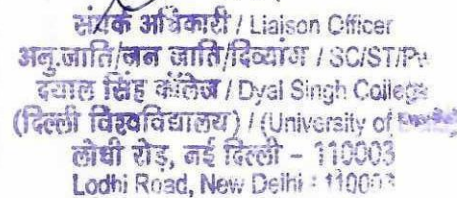 संपर्क अधिकारी / Liaison Officer
अनु.जाति/जन जाति/दिव्यांग / SC/ST/Pw
दयाल सिंह कॉलेज / Dyal Singh College
(दिल्ली विश्वविद्यालय) / (University of
लोधी रोड़, नई दिल्ली - 110003
Lodhi Road, New Delhi : 110003